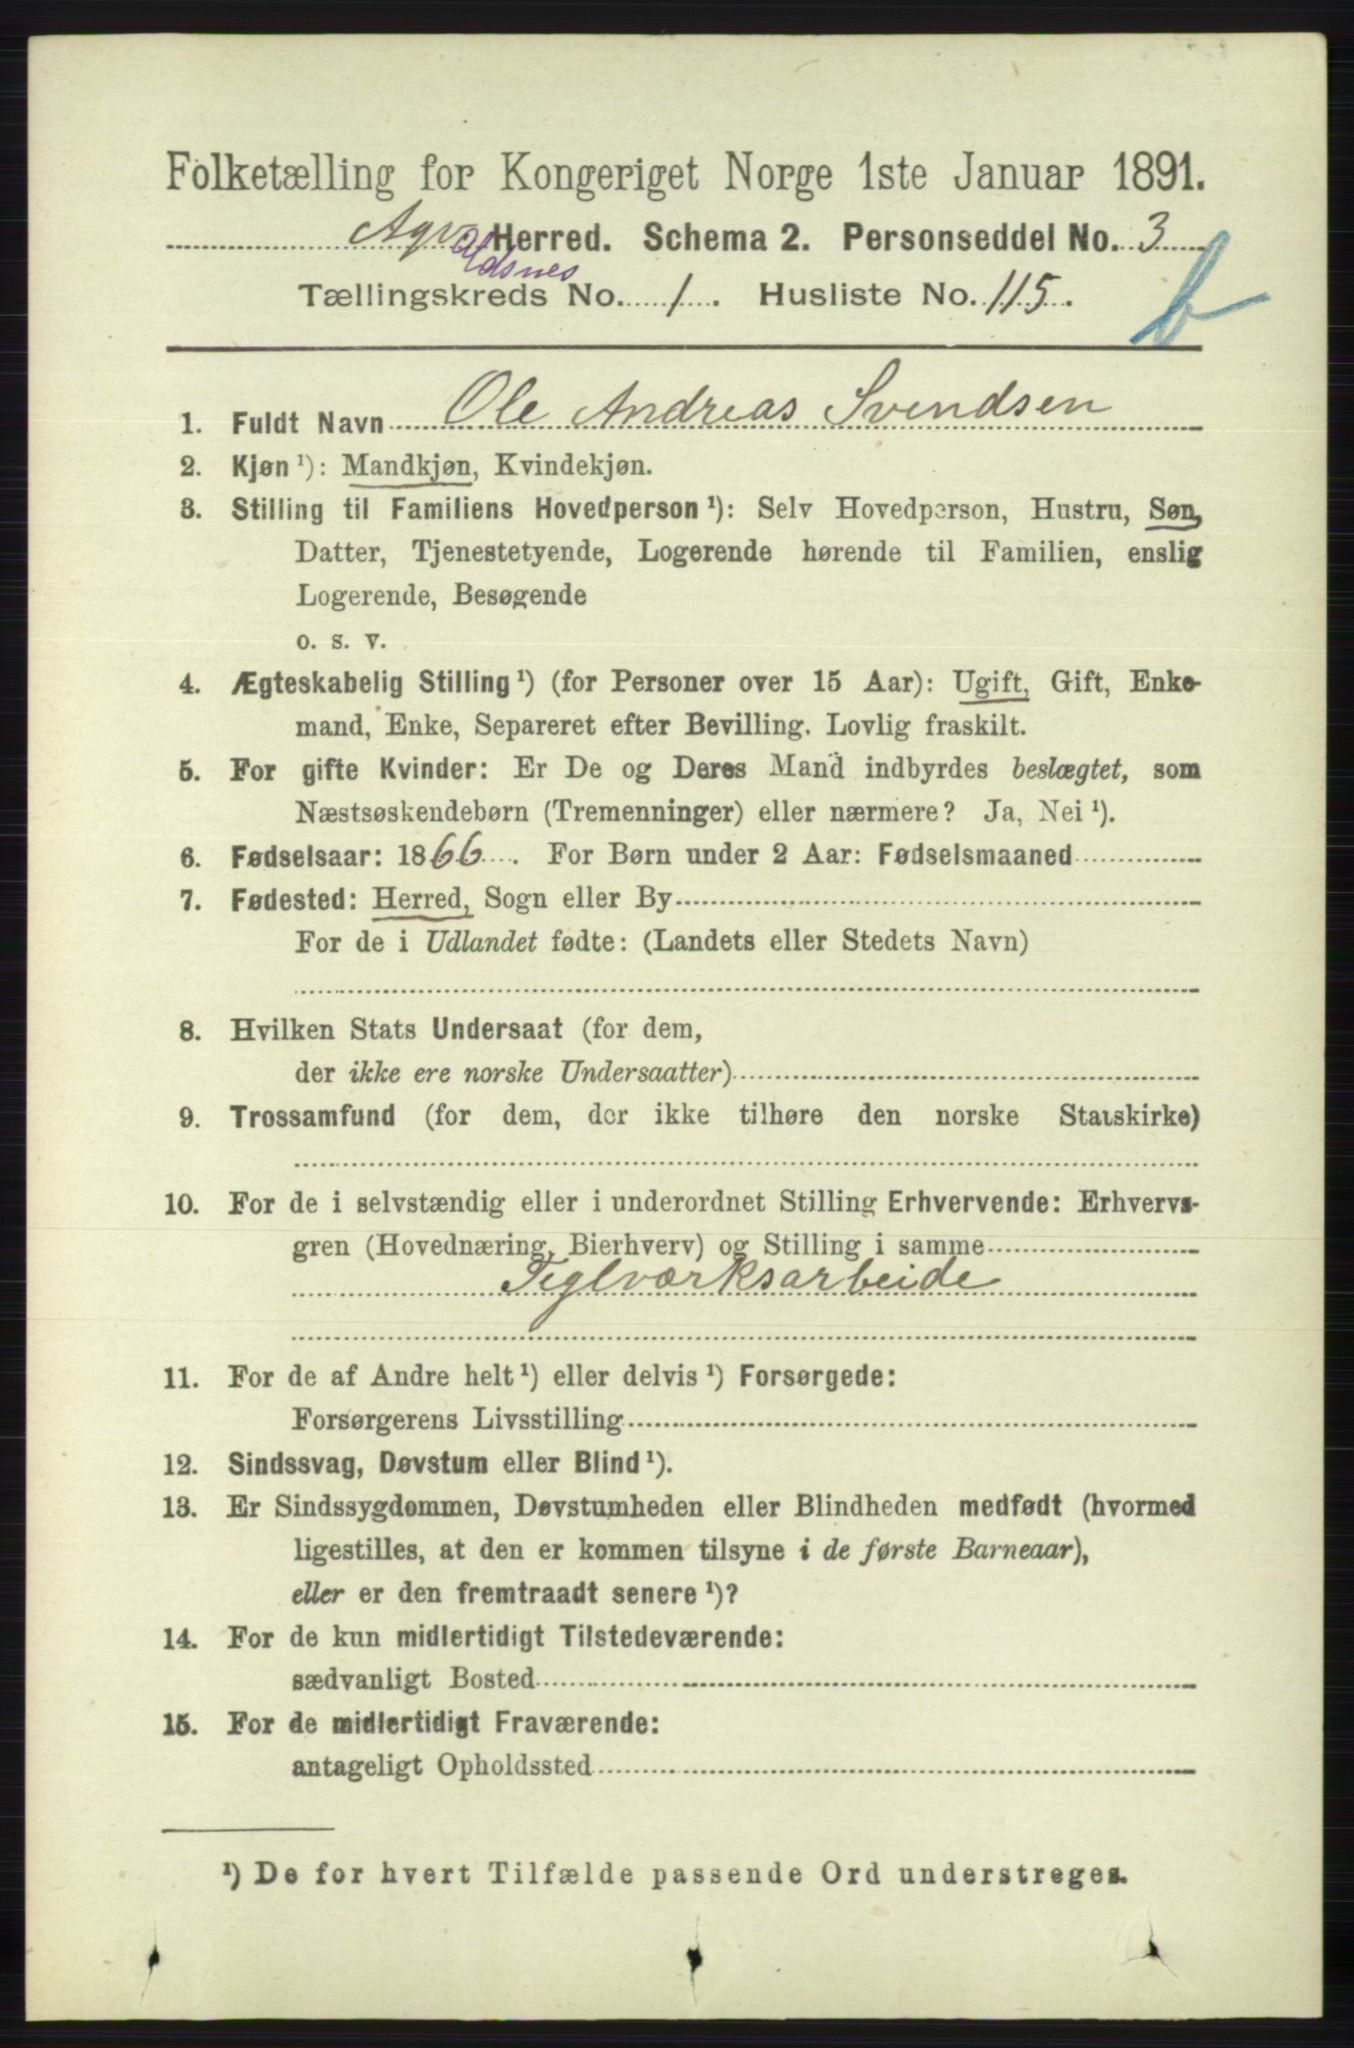 Folketælling for Kongeriget Norge 1ste Januar 1891.
Herred. Schema 2. Personseddel No. 3
Tællingskreds No. 1. Husliste No. 115.
b
1. Fuldt Navn Ole Andreas Svendsen
2. Kjøn ¹): Mandkjøn, Kvindekjøn.
3. Stilling til Familiens Hovedperson ¹): Selv Hovedperson, Hustru, Søn,
Datter, Tjenestetyende, Logerende hørende til Familien, enslig
Logerende, Besøgende
o. s. v.
4. Ægteskabelig Stilling ¹) (for Personer over 15 Aar): Ugift, Gift, Enke-
mand, Enke, Separeret efter Bevilling. Lovlig fraskilt.
5. For gifte Kvinder: Er De og Deres Mand indbyrdes beslægtet, som
Næstsøskendebørn (Tremenninger) eller nærmere? Ja, Nei ¹).
6. Fødselsaar: 1866. For Børn under 2 Aar: Fødselsmaaned
7. Fødested: Herred, Sogn eller By
For de i Udlandet fødte: (Landets eller Stedets Navn)
8. Hvilken Stats Undersaat (for dem,
der ikke ere norske Undersaatter)
9. Trossamfund (for dem, der ikke tilhøre den norske Statskirke)
10. For de i selvstændig eller i underordnet Stilling Erhvervende: Erhvervs-
gren (Hovednæring, Bierhverv) og Stilling i samme
Teglværksarbeide
11. For de af Andre helt ¹) eller delvis ¹) Forsørgede:
Forsørgerens Livsstilling
12. Sindssvag, Døvstum eller Blind ¹).
13. Er Sindssygdommen, Døvstumheden eller Blindheden medfødt (hvormed
ligestilles, at den er kommen tilsyne i de første Barneaar),
eller er den fremtraadt senere ¹)?
14. For de kun midlertidigt Tilstedeværende:
sædvanligt Bosted
15. For de midlertidigt Fraværende:
antageligt Opholdssted
¹) De for hvert Tilfælde passende Ord understreges.